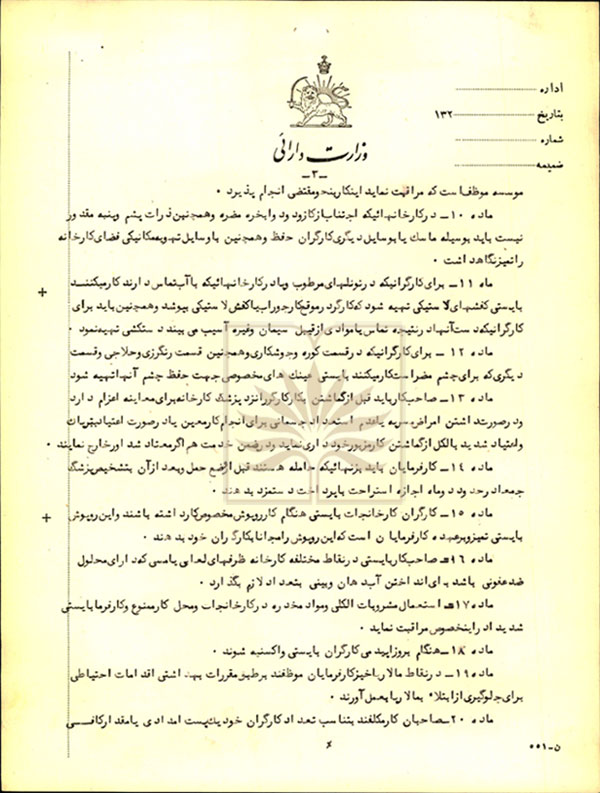 اداره
بتاریخ ۱۳۲
شماره
ضمیمه
وزارت دارائی
ـ۳ـ
موسسه موظف است که مراقبت نماید اینکار بنحو مقتضی انجام پذیرد ۰
ماده ۱۰ـ در کارخانهائیکه اجتناب از گاز و دود و ابخره مضره و همچنین ذرات پشم و پنبه مقدور
نیست باید بوسیله ماسک یا بوسایل دیگری کارگران حفظ و همچنین با وسایل تهویه مکانیکی فضای کارخانه
را تمیز نگاهداشت ۰
ماده ۱۱ـ برای کارگرانیکه در تونلهای مرطوب و یا در کارخانهائیکه با آب تماس دارند کار میکنند
بایستی کفشهای لاستیکی تهیه شود که کارگر در موقع کار جوراب یا کفش لاستیکی بپوشد و همچنین باید برای
کارگرانیکه دست آنها در نتیجه تماس با موادی از قبیل سیمان و غیره آسیب می بیند دستکشی تهیه نمود ۰
ماده ۱۲ ـ برای کارگرانیکه در قسمت کوره و جوشکاری و همچنین قسمت رنگرزی و حلاجی و قسمت
دیگری که برای چشم مضر است کار میکنند بایستی عینک های مخصوصی جهت حفظ چشم آنها تهیه شود
ماده ۱۳ ـ صاحب کار باید قبل از گماشتن بکار کارگر را نزد پزشک کارخانه برای معاینه اعزام دارد
و در صورت داشتن امراض مسریه یا عدم استعداد جسمانی برای انجام کار معین یا در صورت اعتیاد بتریاک
و اعتیاد شدید بالکل از گماشتن کار مزبور خودداری نماید و در ضمن خدمت هم اگر معتاد شد او را خارج نمایند ۰
ماده ۱۴ ـ کارفرمایان باید بزنهائیکه حامله هستند قبل از وضع حمل و بعد از آن بتشخیص پزشک
جمعا در حدود دو ماه اجازه استراحت با پرداخت دستمزد بدهند ۰
ماده ۱۵ـ کارگران کارخانجات بایستی هنگام کار روپوش مخصوص کار داشته باشند و این روپوش
بایستی تمیز و بر عهده کارفرمایان است که این روپوش را مجانا بکارگران خود بدهند ۰
ماده ۱۶ـ صاحب کار بایستی در نقاط مختلفه کارخانه ظرفهای لعابی یا مسی که دارای محلول
ضد عفونی باشد برای انداختن آب دهان و بینی بتعداد لازم بگذارد ۰
ماده ۱۷ـ استعمال مشروبات الکلی و مواد مخدره در کارخانجات و محل کار ممنوع و کارفرما بایستی
شدیدا در اینخصوص مراقبت نماید ۰
ماده ۱۸ـ هنگام بروز اپیدمی کارگران بایستی واکسینه شوند ۰
ماده ۱۹ـ در نقاط مالاریاخیز کارفرمایان موظفند بر طبق مقررات بهداشتی اقدامات احتیاطی
برای جلوگیری از ابتلاء بمالاریا بعمل آورند ۰
ماده ۲۰ـ صاحبان کار مکلفند بتناسب تعداد کارگران خود یک پست امدادی با مقدار کافی
ن ـ ۵۵۱